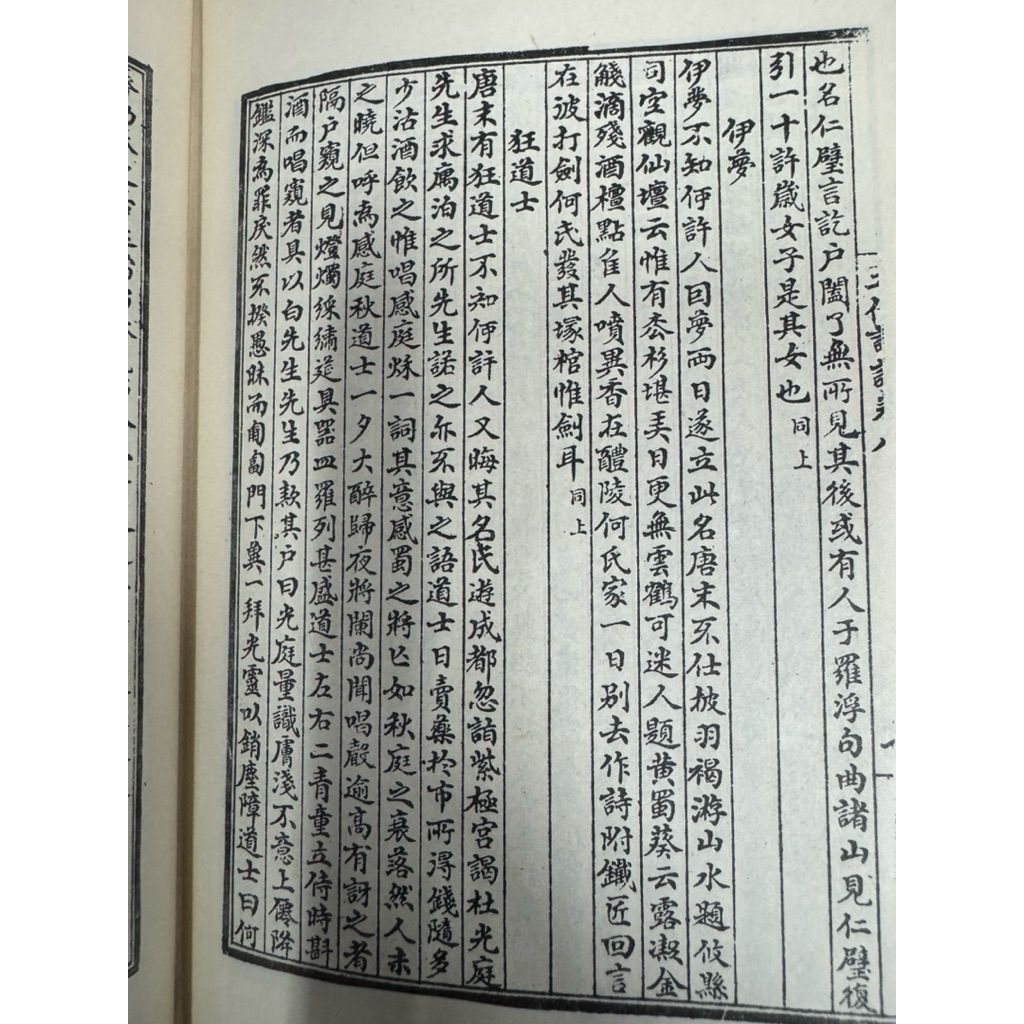 也名仁璧言訖户闔了無所見其後或有人于羅浮句曲諸山見仁璧復
引一十許歲女子是其女也同上
伊夢
伊夢不知何許人因夢兩日遂立此名唐末不仕披羽褐游山水題攸縣
司空觀仙壇云惟有松杉堪美日更無雲鶴可迷人題黄蜀葵云露凝金
觴滴殘酒檀點佳人噴異香在醴陵何氏家一日别去作詩附鐵匠回言
在彼打劍何氏發其塚棺惟劍耳同上
狂道士
唐末有狂道士不知何許人又晦其名氏遊成都忽詣紫極宫謁杜光庭
先生求寓泊之所先生諾之亦不與之語道士日賣藥於市所得錢隨多
少沽酒飲之惟唱感庭秋一詞其意感蜀之將亡如秋庭之衰落然人未
之曉但呼為感庭秋道士一夕大醉歸夜將闌尚聞唱聲逾高有訝之者
隔户窺之見燈燭綵繡筵具器皿羅列甚盛道士左右二青童立侍時斟
酒而唱窺者具以白先生先生乃款其户曰光庭量識膚淺不意上僊降
鑑深為罪戾然不揆愚昧而匍匐門下冀一拜光靈以銷塵障道士曰何